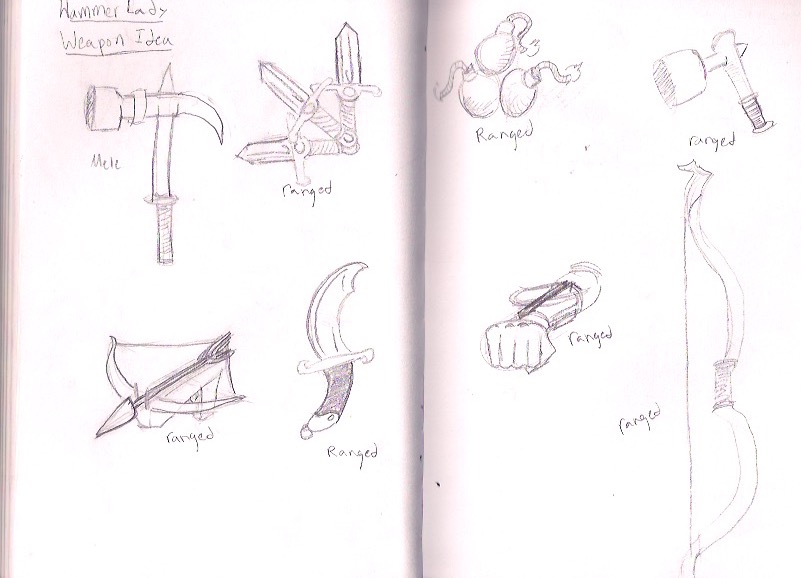 Hammer Lady
Weapon Idea
Mele
ranged
Ranged
ranged
ranged
Ranged
ranged
ranged